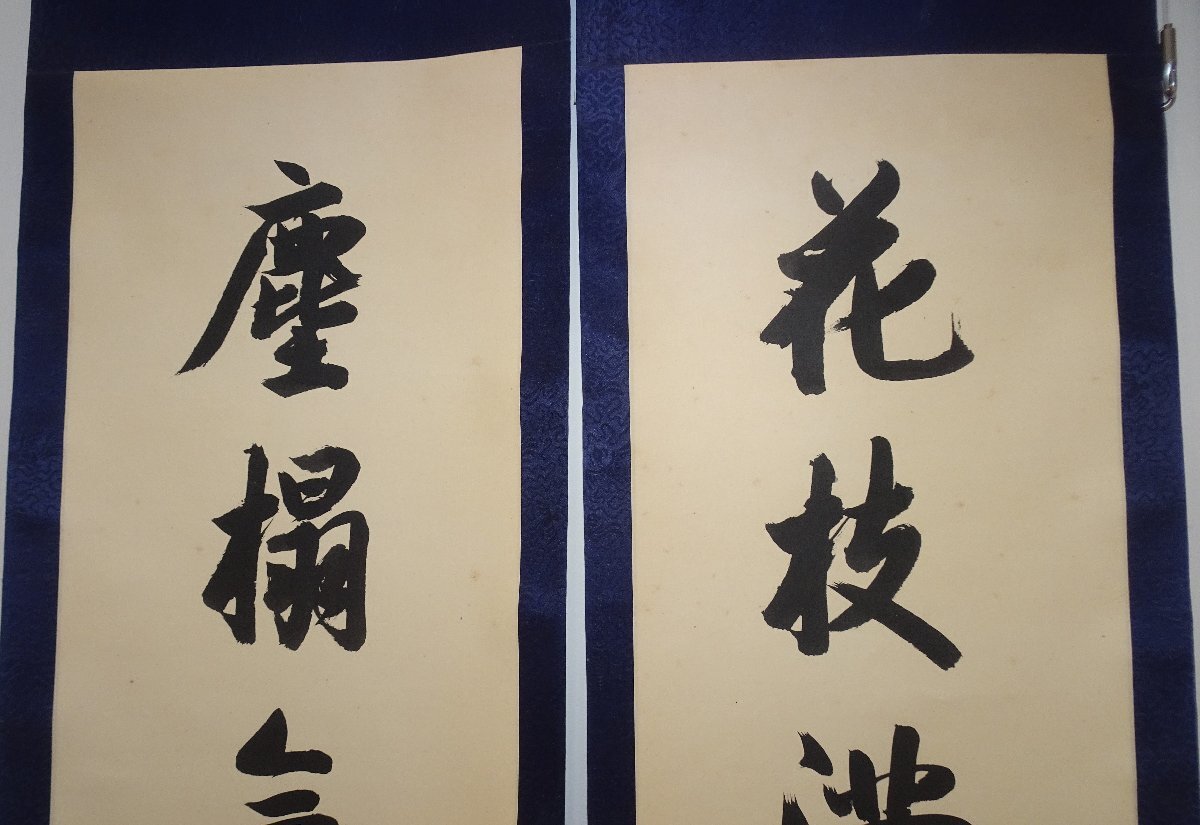 花枝
塵榻